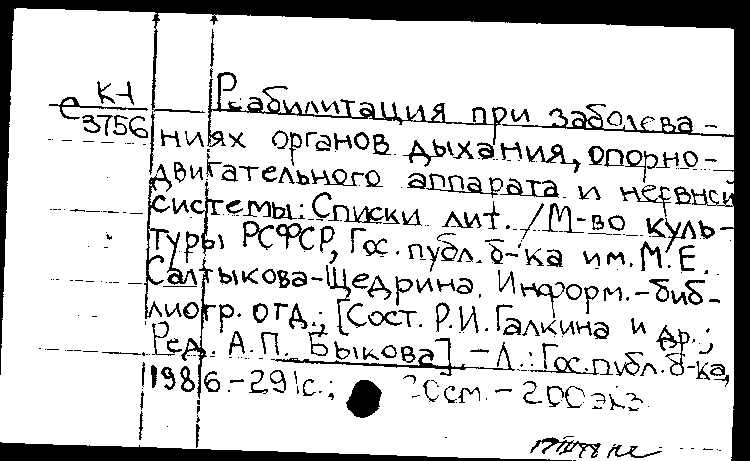 К-1 Реабилитация при заболева-
е 3756 ниях органов дыхания, опорно-
двигательного аппарата и нервной
системы: Списки лит. / М-во куль-
туры РСФСР, Гос. публ. б-ка им. М.Е.
Салтыкова-Щедрина. Информ.-биб-
лиогр. отд.; [Сост. Р.И. Галкина и др.;
Ред. А.П. Быкова]. - Л.: Гос. публ. б-ка,
1986. - 291с.; 20см. - 200экз.